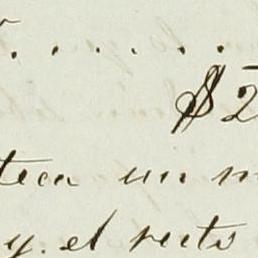 . . . . . .
$2
teca un m
y. el resto